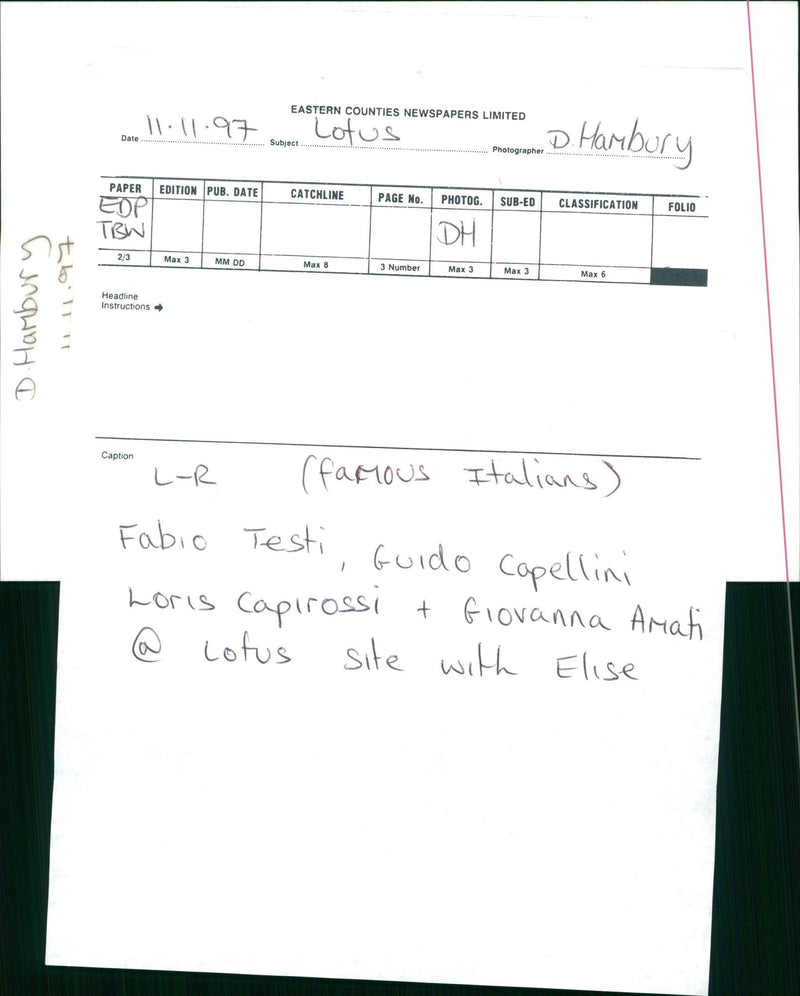 EASTERN COUNTIES NEWSPAPERS LIMITED
Date 11.11.97 Subject Lotus Photographer D. Hambury
PAPER EDITION PUB. DATE CATCHLINE PAGE No. PHOTOG. SUB-ED CLASSIFICATION FOLIO
EDP
TBW DH
2/3 Max 3 MM DD Max 8 3 Number Max 3 Max 3 Max 6
Headline
Instructions ➔
Caption
L-R (famous Italians)
Fabio Testi, Guido Capellini
Loris Capirossi + Giovanna Amati
@ Lotus site with Elise
D. Hambury
11.11.97